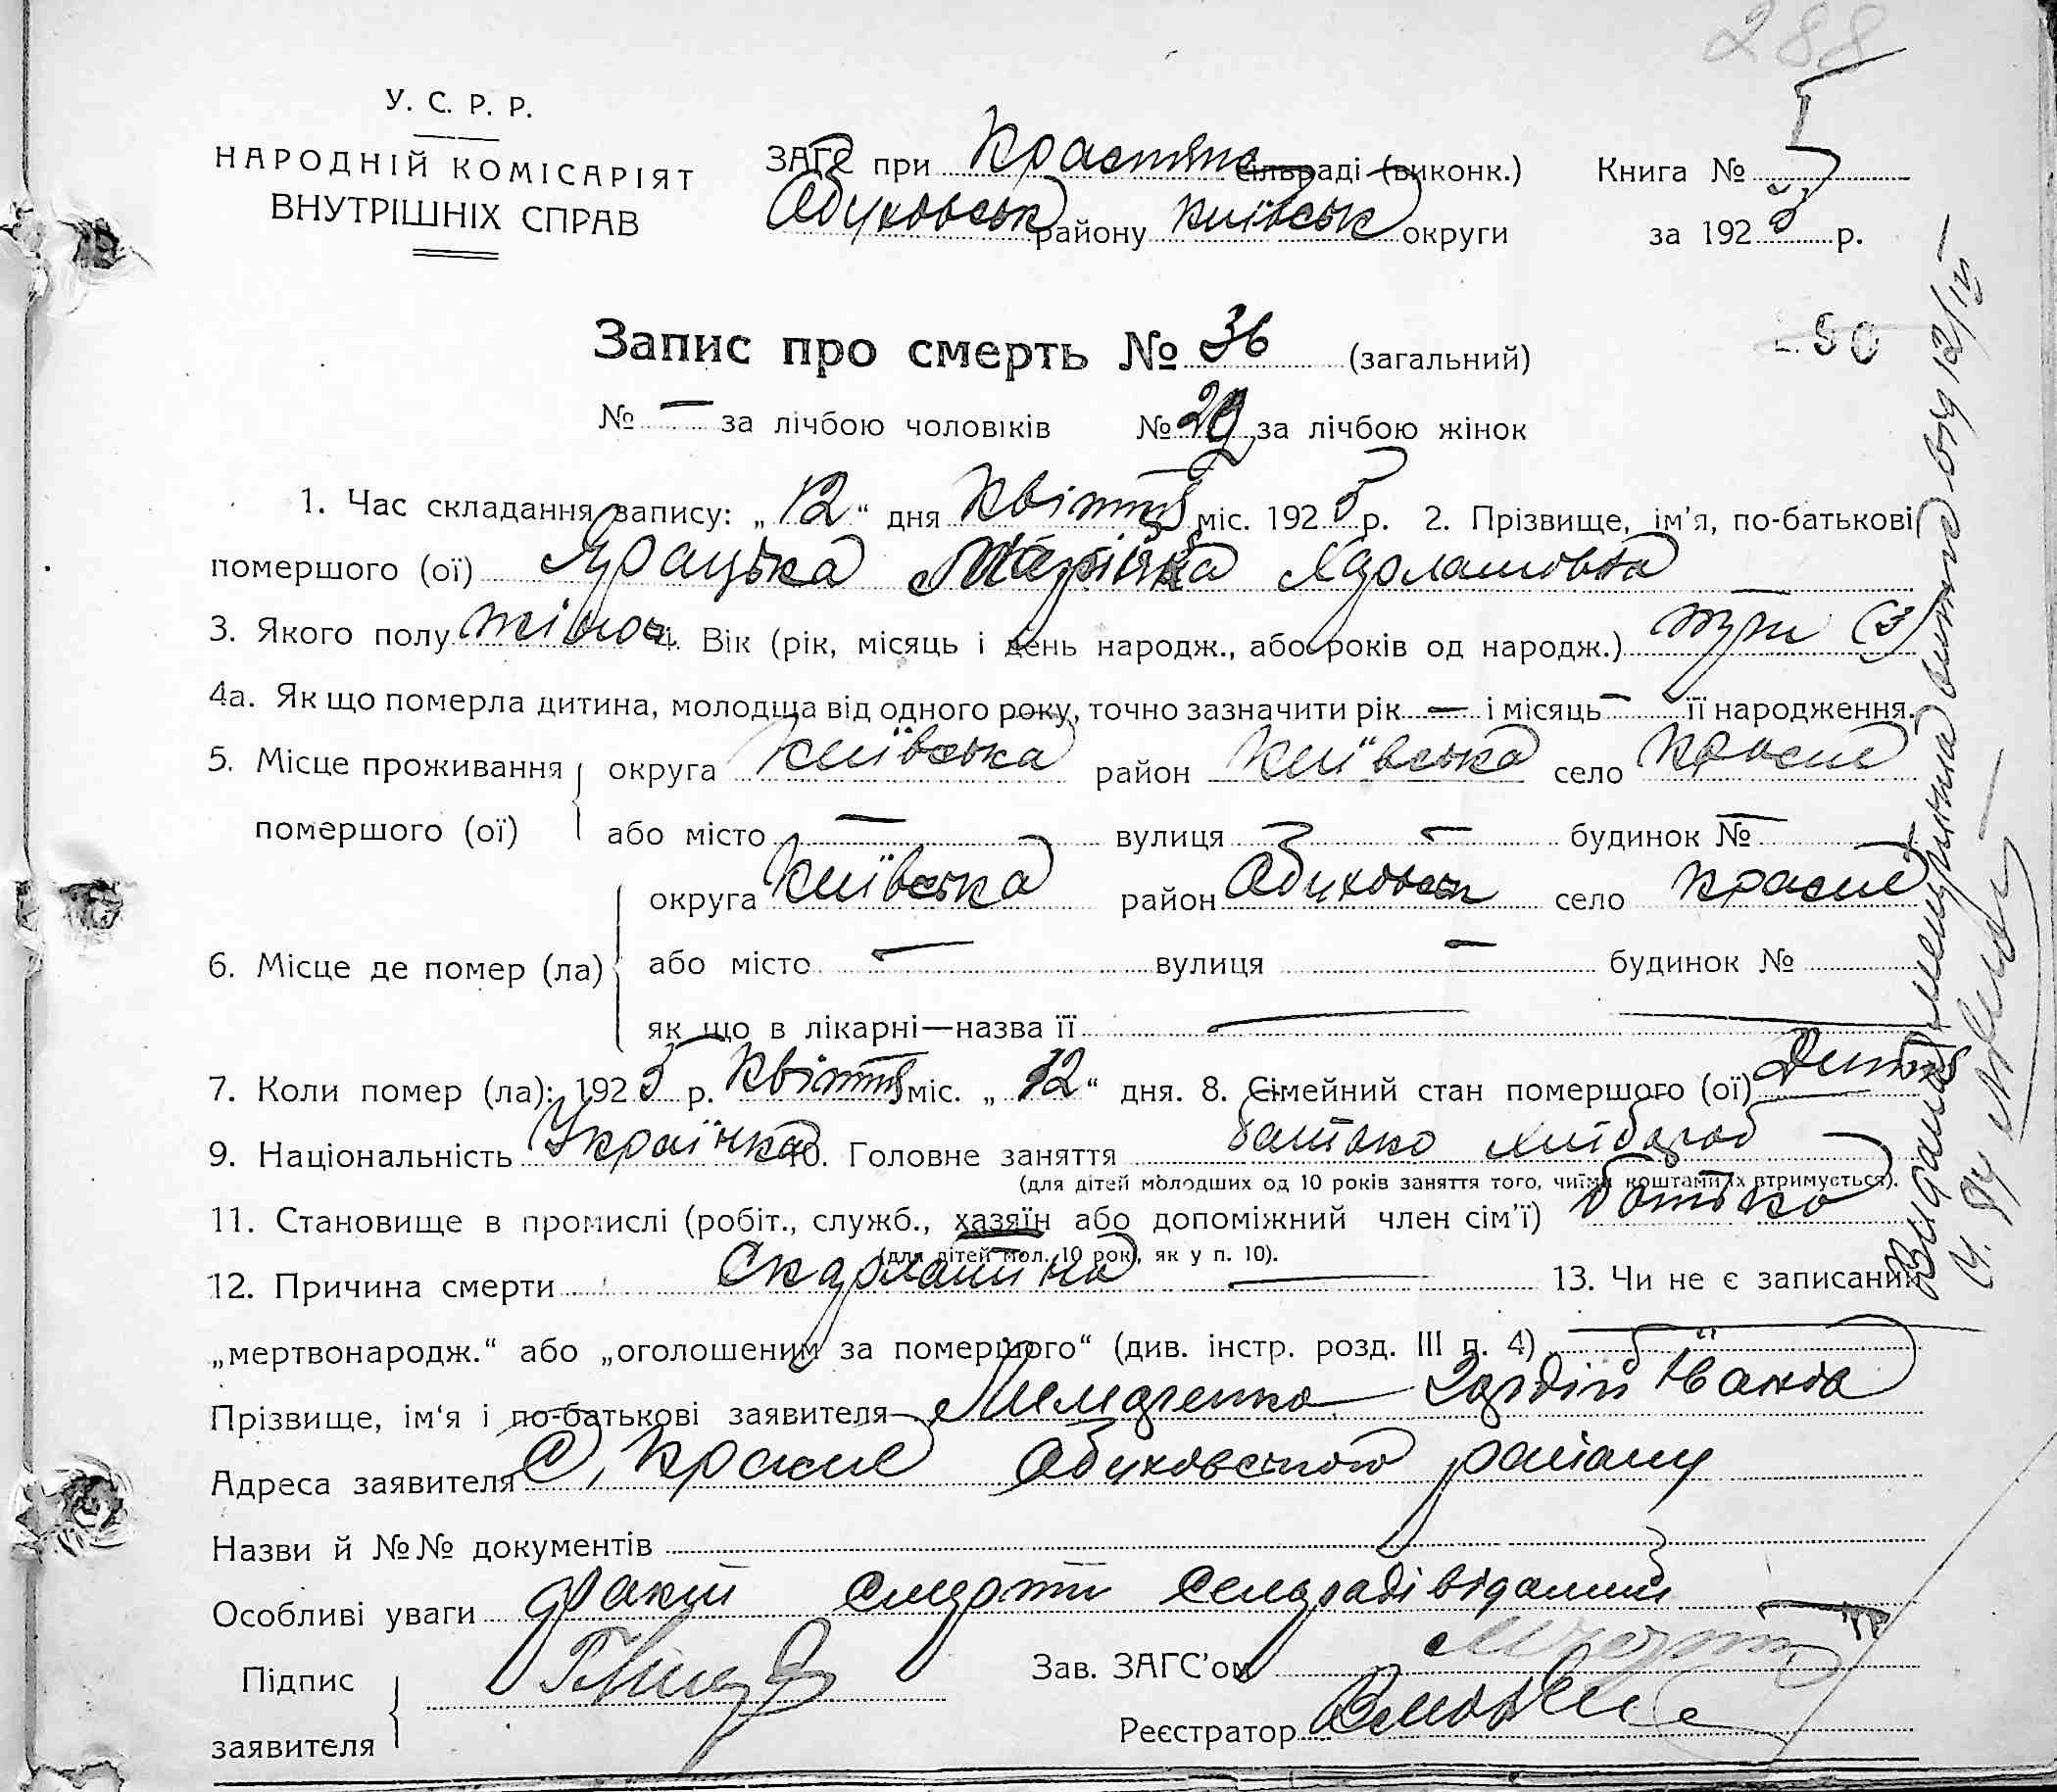 288
У. С. Р. Р.
НАРОДНІЙ КОМІСАРІЯТ
ВНУТРІШНІХ СПРАВ
ЗАГС при Краснян сільраді (виконк.) Книга № I
Обуховськ району Київськ округи за 1925 р.
Запис про смерть № 36 (загальний)
50
№ — за лічбою чоловіків № 29 за лічбою жінок
1. Час складання запису: „12“ дня Квітня міс. 1925 р. 2. Прізвище, ім'я, по-батькові
помершого (ої)
3. Якого полу жіноч 4. Вік (рік, місяць і день народж., або років од народж.) три (3)
4а. Як що померла дитина, молодща від одного року, точно зазначити рік — і місяць — її народження.
5. Місце проживання округа Київська район Київська село Красне
помершого (ої) або місто — вулиця — будинок № —
округа Київська район Обуховськ село Красне
6. Місце де помер (ла) або місто — вулиця — будинок №
як що в лікарні—назва її —
7. Коли помер (ла): 1925 р. Квітня міс. „12“ дня. 8. Сімейний стан помершого (ої) Дитя
9. Національність Українка 10. Головне заняття батько хлібороб
(для дітей молодших од 10 років заняття того, чиїми коштами їх втримується).
11. Становище в промислі (робіт., служб., хазяїн або допоміжний член сім'ї) батько
(для дітей мол. 10 рок., як у п. 10).
12. Причина смерти Скарлатина — 13. Чи не є записаний
„мертвонародж.“ або „оголошеним за помершого“ (див. інстр. розд. III п. 4)
Прізвище, ім'я і по-батькові заявителя
Адреса заявителя с. Красне Обуховського району
Назви й №№ документів
Особливі уваги факт смерти сельраді відомий
Підпис
заявителя
Зав. ЗАГС'ом
Реєстратор